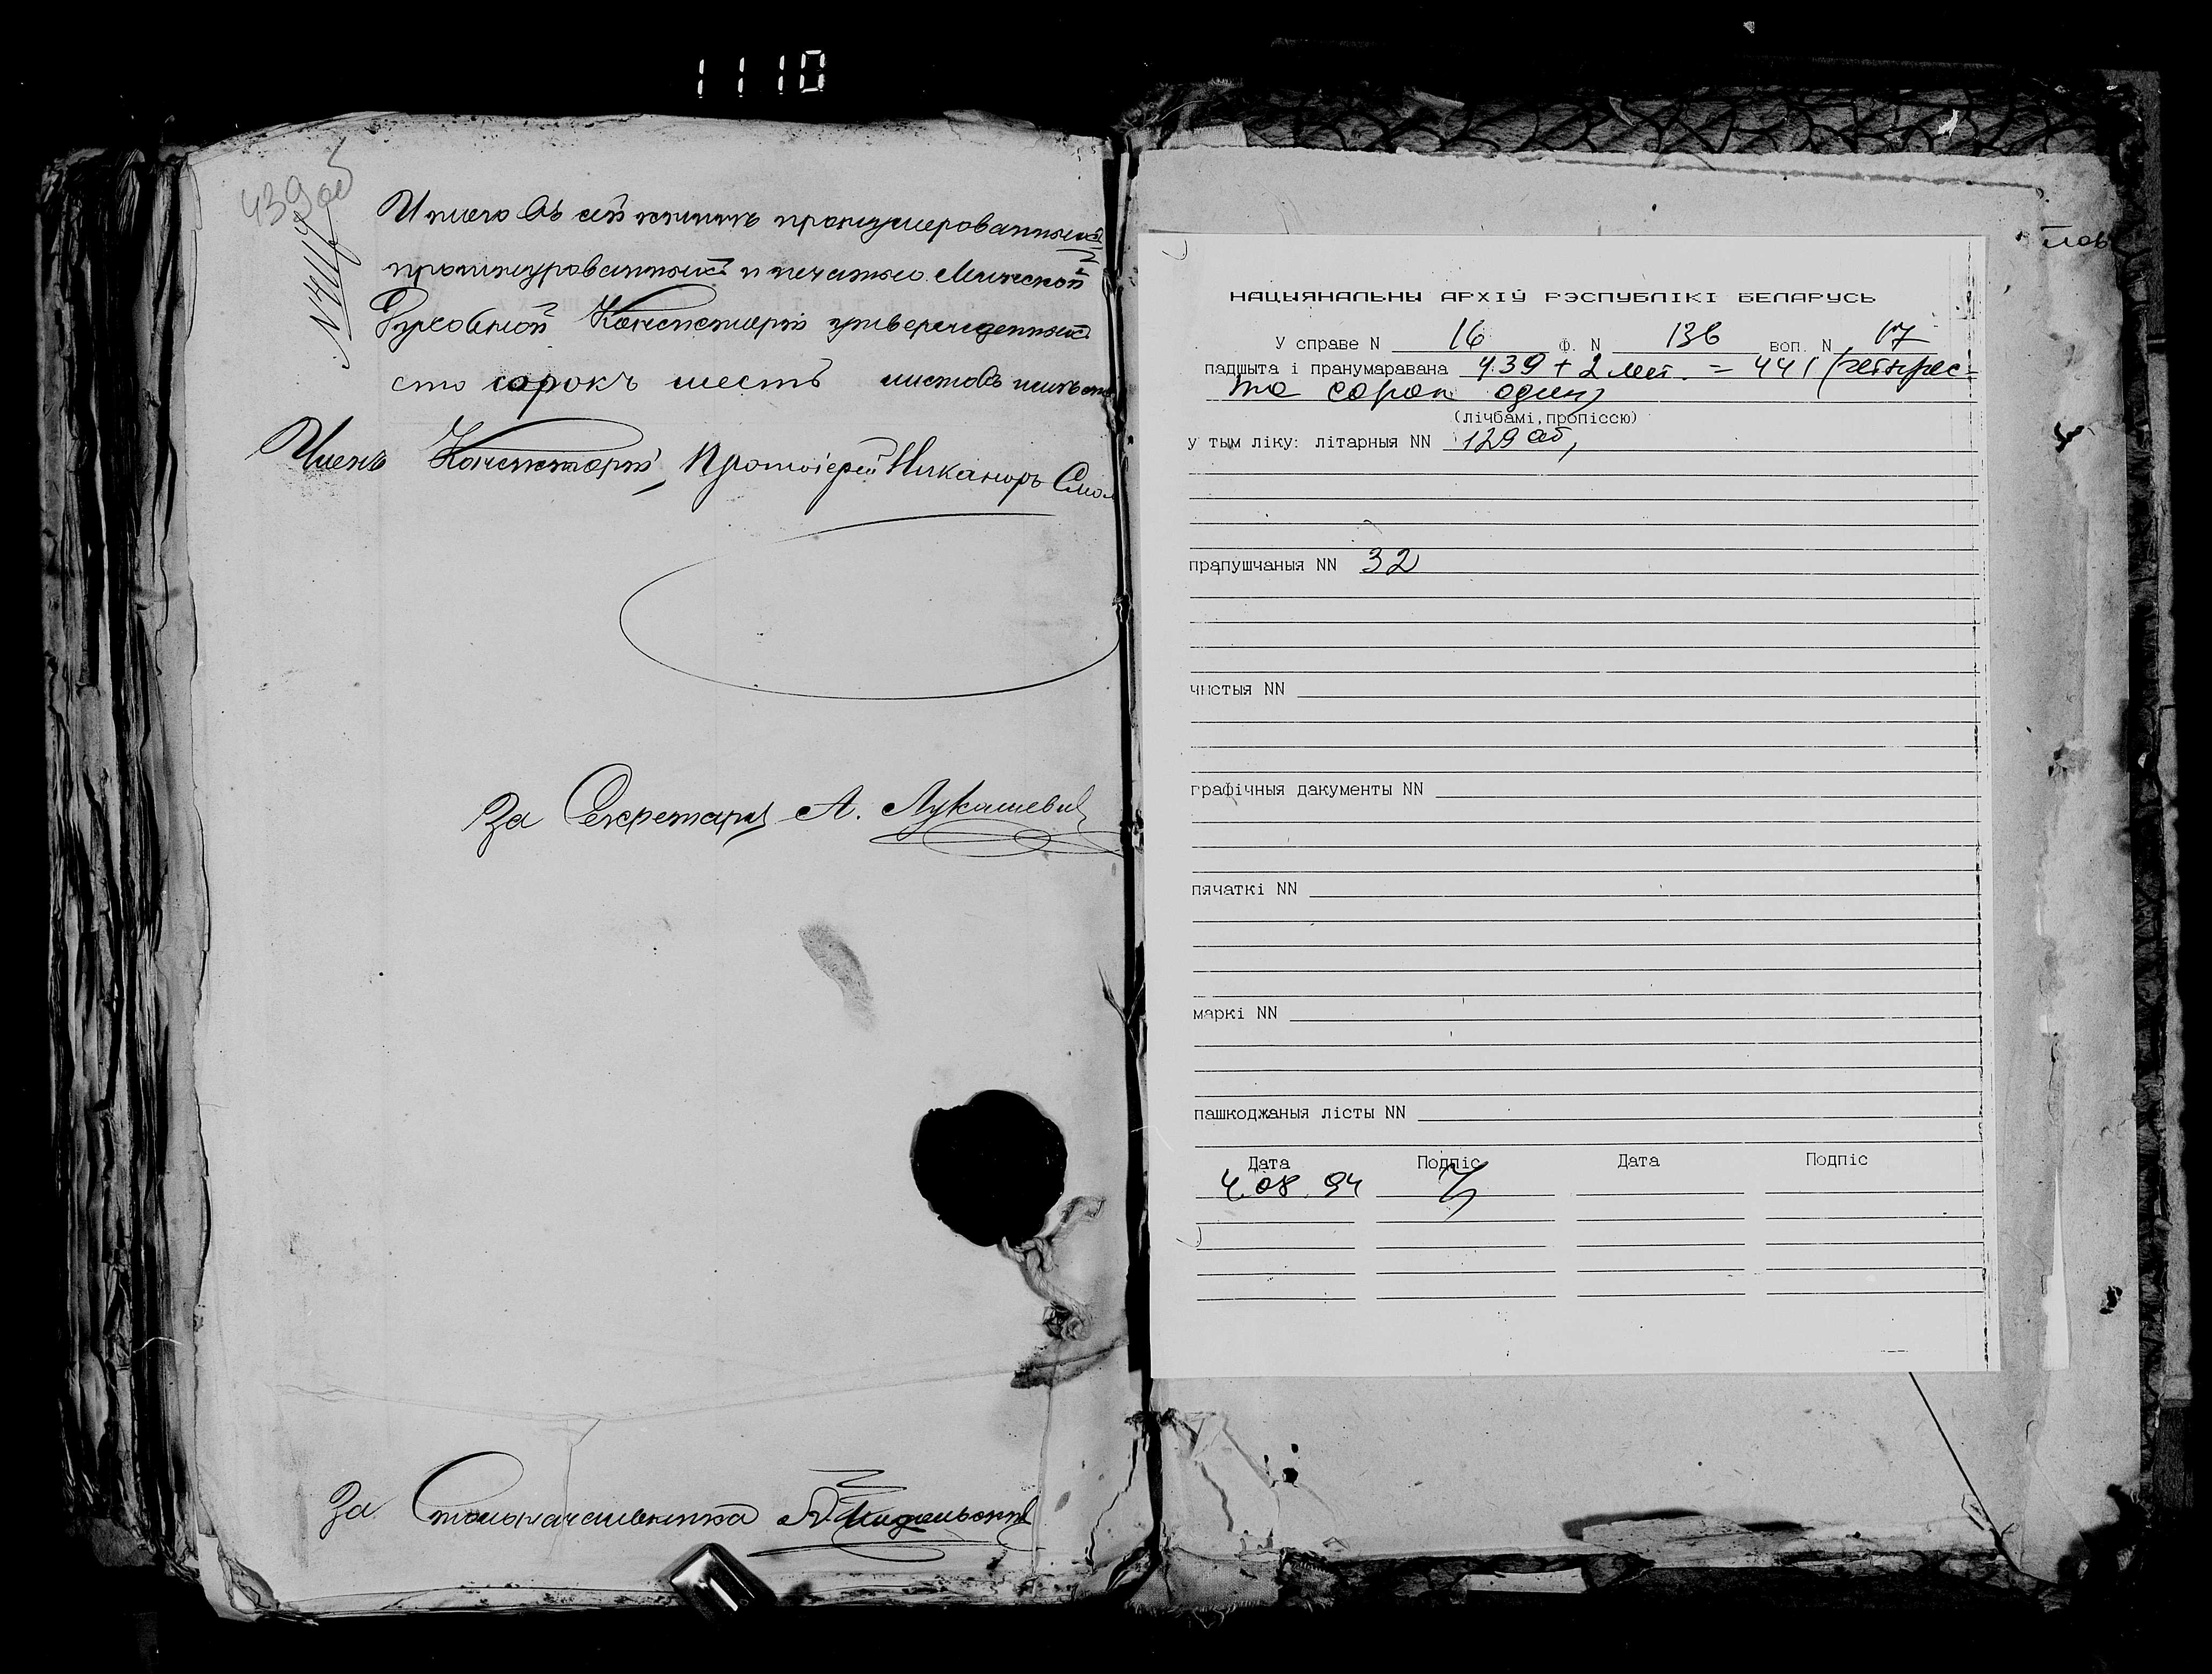 1110
439 об
Итого въ сей книгѣ пронумерованныхъ
прошнурованныхъ и печатью Минской
Духовной Консисторіи утвержденныхъ
сто сорокъ шесть листовъ
Членъ Консисторіи, Протоіерей Никаноръ Смол
За Секретаря А. Лукашевич
За Столоначальника
НАЦЫЯНАЛЬНЫ АРХІЎ РЭСПУБЛІКІ БЕЛАРУСЬ
У справе N 16 Ф. N 136 воп. N
падшыта і пранумаравана 439 + 2 лит. = 441 (четырес-
та сорак один)
(лічбамі, пропіссю)
у тым ліку: літарныя NN 129 аб,
прапушчаныя NN 32
чыстыя NN
графічныя дакументы NN
пячаткі NN
маркі NN
пашкоджаныя лісты NN
Дата Подпіс Дата Подпіс
4.08.94